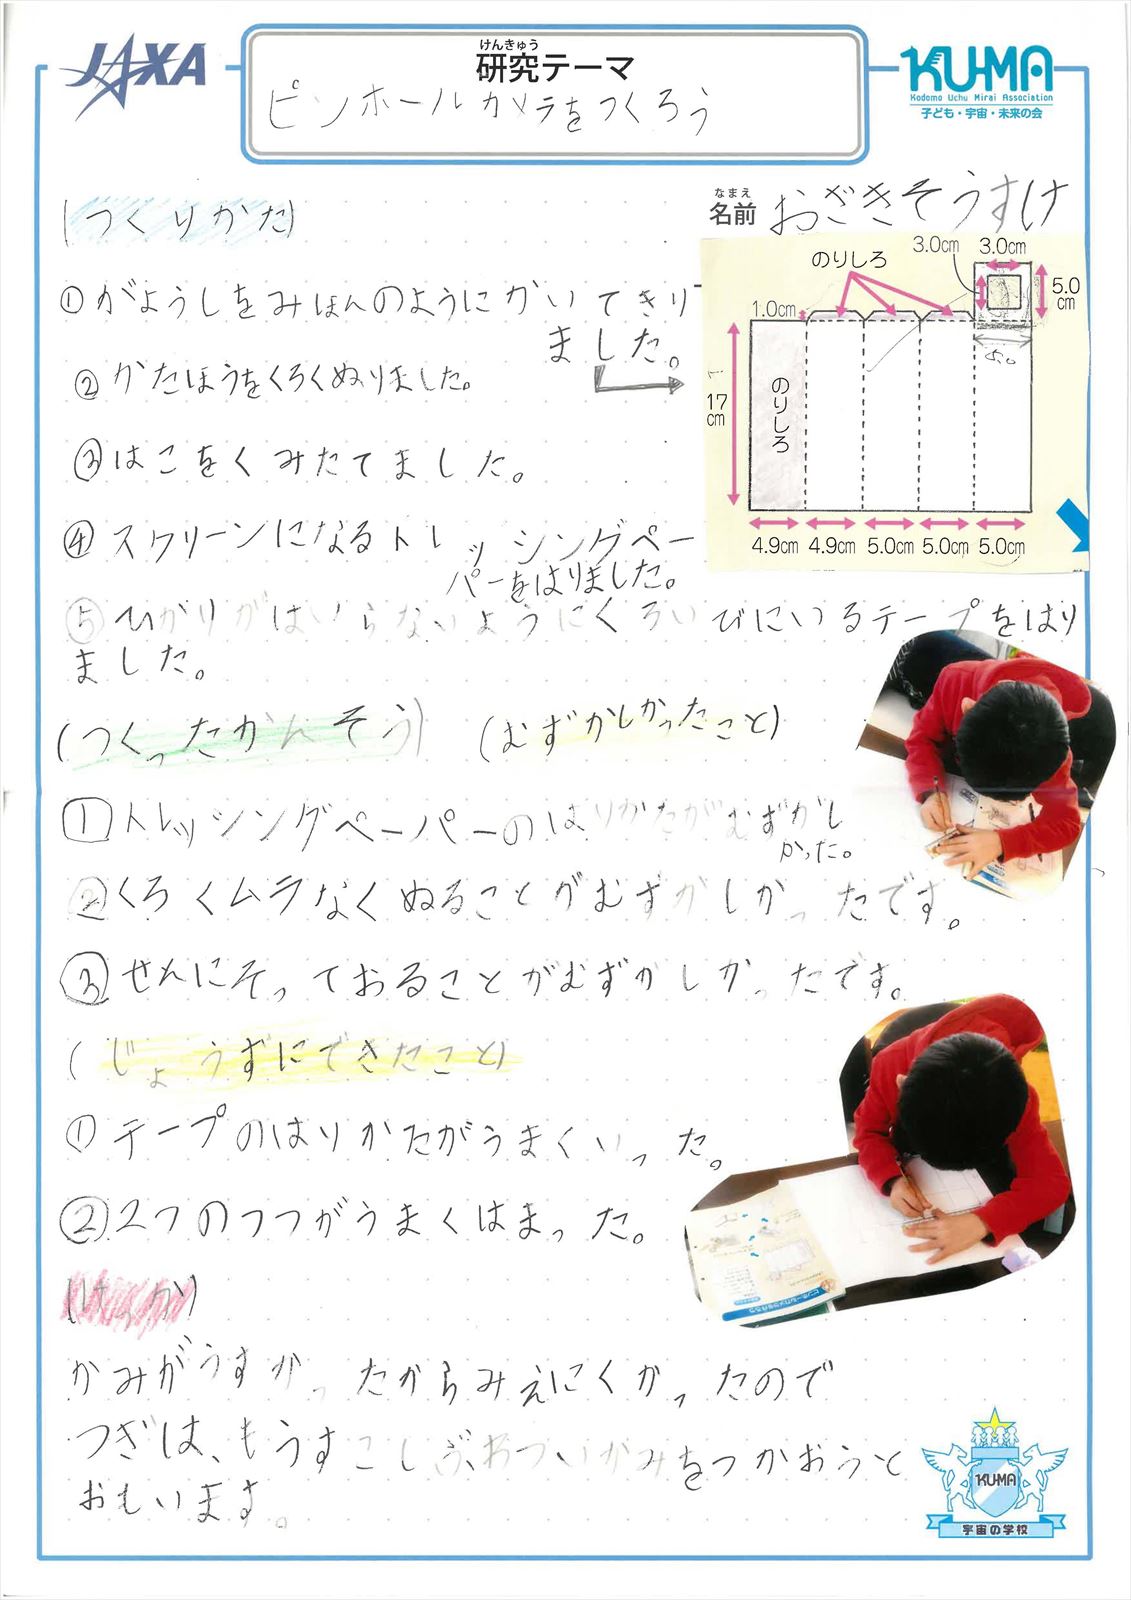 JAXA
けんきゅう
研究テーマ
ピンホールカメラをつくろう
KU-MA
Kodomo Uchu Mirai Association
子ども・宇宙・未来の会
なまえ
名前 おざきそうすけ
(つくりかた)
①がようしをみほんのようにかいてきり
ました。
②かたほうをくろくぬりました。
③はこをくみたてました。
④スクリーンになるトレッシングペー
パーをはりました。
⑤ひかりがはいらないようにくろいびにいるテープをはり
ました。
のりしろ
3.0cm
3.0cm
5.0
cm
1.0cm
5.0
17
cm
のりしろ
4.9cm 4.9cm 5.0cm 5.0cm 5.0cm
(つくったかんそう) (むずかしかったこと)
①トレッシングペーパーのはりかたがむずかし
かった。
②くろくムラなくぬることがむずかしかったです。
③せんにそっておることがむずかしかったです。
(じょうずにできたこと)
①テープのはりかたがうまくいった。
②2つのつつがうまくはまった。
(けっか)
かみがうすかったからみえにくかったので
つぎは、もうすこしぶあついかみをつかおうと
おもいます。
KU-MA
宇宙の学校